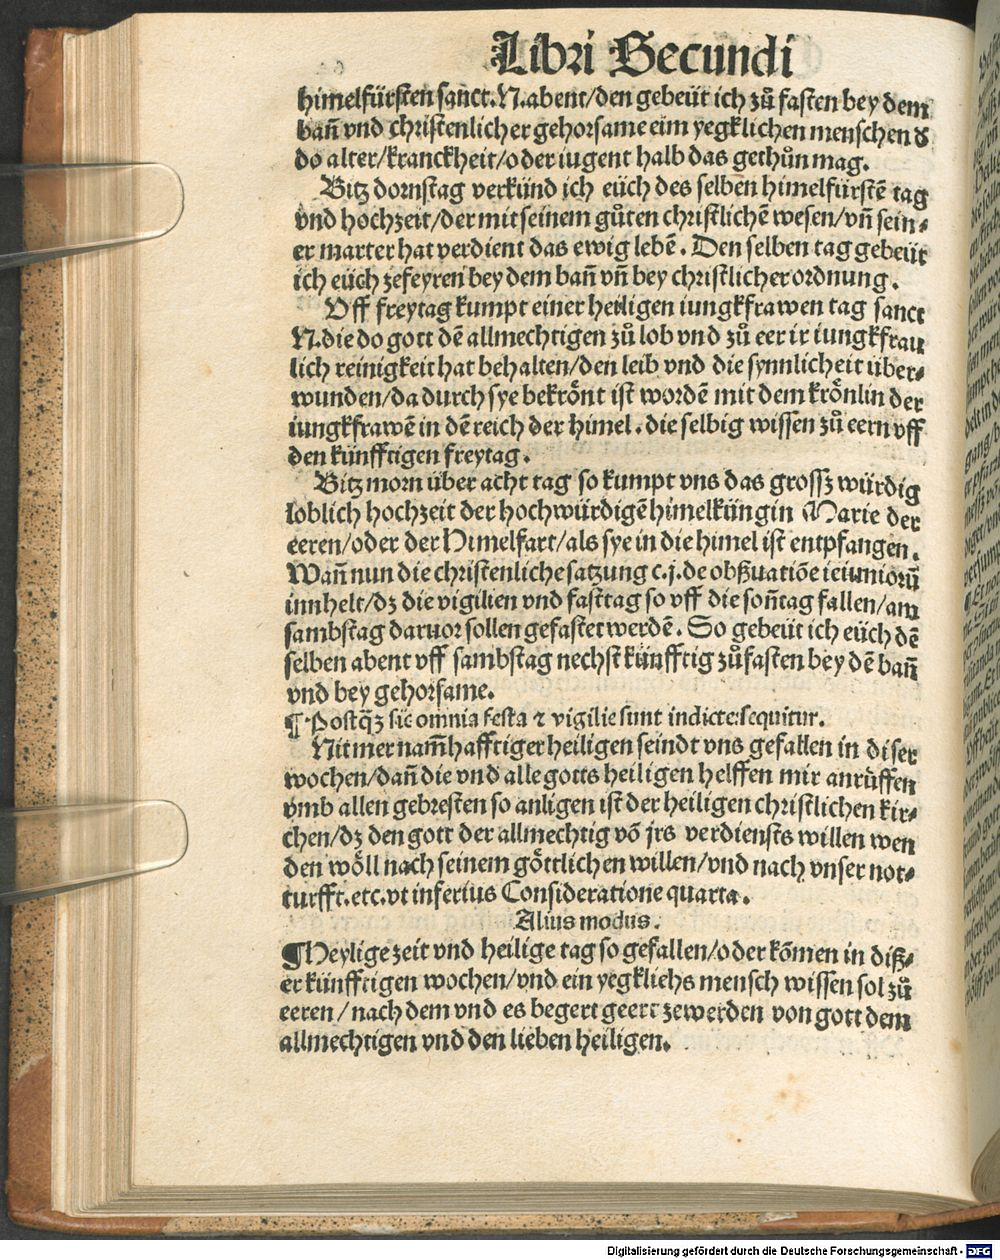 Libri Secundi
himelfürsten sanct. N. abent/den gebeüt ich zů fasten bey dem
bañ vnd christenlicher gehorsame eim yegklichen menschen d
do alter/kranckheit/oder iugent halb das gethůn mag.
Bitz dornstag verkünd ich eüch des selben himelfürstē tag
vnd hochzeit/der mit seinem gůten christlichē wesen/vñ sein⸗
er marter hat verdient das ewig lebē. Den selben tag gebeüt
ich eüch zefeyren bey dem bañ vñ bey christlicher ordnung.
Uff freytag kumpt einer heiligen iungkfrawen tag sanct
N. die do gott dē allmechtigen zů lob vnd zů eer ir iungkfrau
lich reinigkeit hat behalten/den leib vnd die synnlicheit über⸗
wunden/da durch sye bekrönt ist wordē mit dem krönlin der
iungkfrawē in dē reich der himel. die selbig wissen zů eern vff
den künfftigen freytag.
Bitz morn über acht tag so kumpt vns das grossz würdig
loblich hochzeit der hochwürdigē himelküngin Marie der
eeren/oder der Himelfart/als sye in die himel ist entpfangen.
Wañ nun die christenliche satzung c.j. de obßuatiōe ieiuniorū
innhelt/dz die vigilien vnd fasttag so vff die soñtag fallen/am
sambstag daruor sollen gefastet werdē. So gebeüt ich eüch dē
selben abent vff sambstag nechst künfftig zůfasten bey dē bañ
vnd bey gehorsame.
¶ Postq̄z sic omnia festa ⁊ vigilie sunt indicte: sequitur.
Nit mer nam̃hafftiger heiligen seindt vns gefallen in diser
wochen/dañ die vnd alle gotts heiligen helffen mir anrüffen
vmb allen gebresten so anligen ist der heiligen christlichen kir⸗
chen/dz den gott der allmechtig vō jrs verdiensts willen wen
den wöll nach seinem göttlichen willen/vnd nach vnser not⸗
turfft. etc. vt inferius Consideratione quarta.
Alius modus.
¶Heylige zeit vnd heilige tag so gefallen/oder kōmen in diß⸗
er künfftigen wochen/vnd ein yegkliehs mensch wissen sol zů
eeren/nach dem vnd es begert geert zewerden von gott dem
allmechtigen vnd den lieben heiligen.
Digitalisierung gefördert durch die Deutsche Forschungsgemeinschaft - DFG